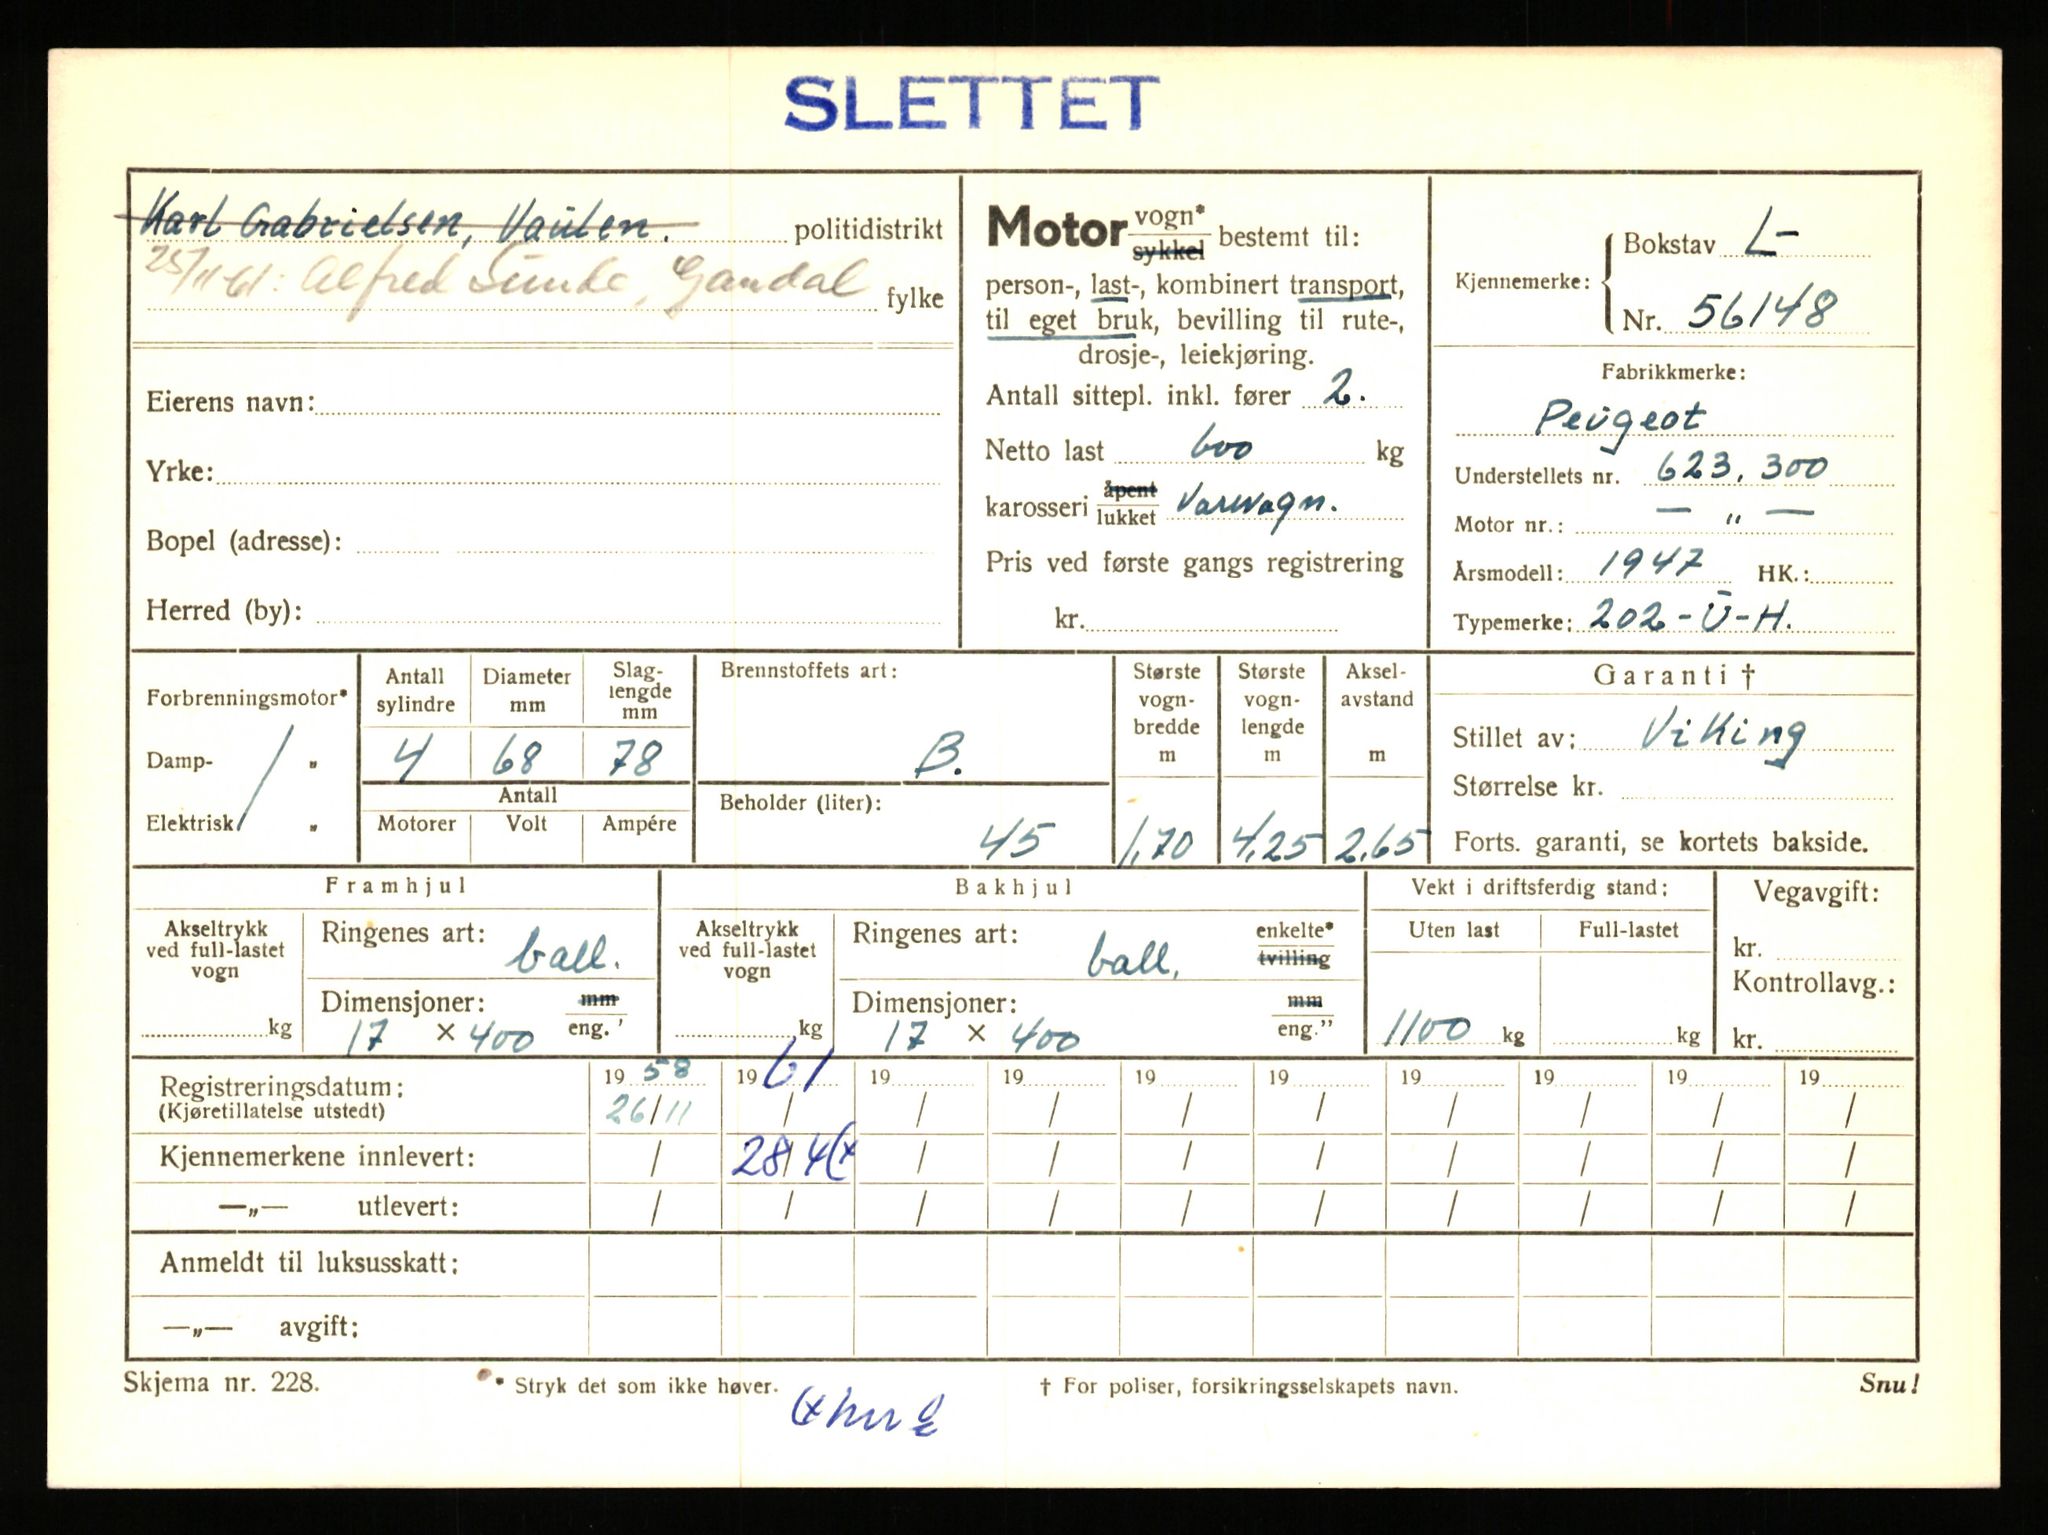 SLETTET
Karl Gabrielsen, Vaulen. politidistrikt
25/11-61: Alfred Sunde, Gandal fylke
Eierens navn:
Yrke:
Bopel (adresse):
Herred (by):
Motor vogn* sykkel bestemt til:
person-, last-, kombinert transport,
til eget bruk, bevilling til rute-,
drosje-, leiekjøring.
Antall sittepl. inkl. fører 2.
Netto last 600 kg
karosseri åpent lukket Varevogn.
Pris ved første gangs registrering
kr.
Kjennemerke: Bokstav L-
Nr. 56148
Fabrikkmerke:
Peugeot
Understellets nr. 623.300
Motor nr.: — „ —
Årsmodell: 1947 HK.:
Typemerke: 202-U-H.
Forbrenningsmotor*
Damp- „
Elektrisk „
Antall sylindre Diameter mm Slag-lengde mm
4 68 78
Antall
Motorer Volt Ampére
Brennstoffets art:
B.
Beholder (liter):
45
Største vogn-bredde m Største vogn-lengde m Aksel-avstand m
1,70 4,25 2,65
Garanti †
Stillet av: Viking
Størrelse kr.
Forts. garanti, se kortets bakside.
Framhjul
Akseltrykk ved full-lastet vogn
kg
Ringenes art: ball.
Dimensjoner: mm
17 × 400 eng.'
Bakhjul
Akseltrykk ved full-lastet vogn
kg
Ringenes art: ball. enkelte* tvilling
Dimensjoner: mm
17 × 400 eng."
Vekt i driftsferdig stand:
Uten last Full-lastet
1100 kg kg
Vegavgift:
kr.
Kontrollavg.:
kr.
Registreringsdatum: 19 58 19 61 19 19 19 19 19 19 19 19
(Kjøretillatelse utstedt) 26/11 / / / / / / / / /
Kjennemerkene innlevert: / 28/4 (x / / / / / / / /
—„— utlevert: / / / / / / / / / /
Anmeldt til luksusskatt:
—„— avgift:
Skjema nr. 228. * Stryk det som ikke høver. † For poliser, forsikringsselskapets navn. Snu!